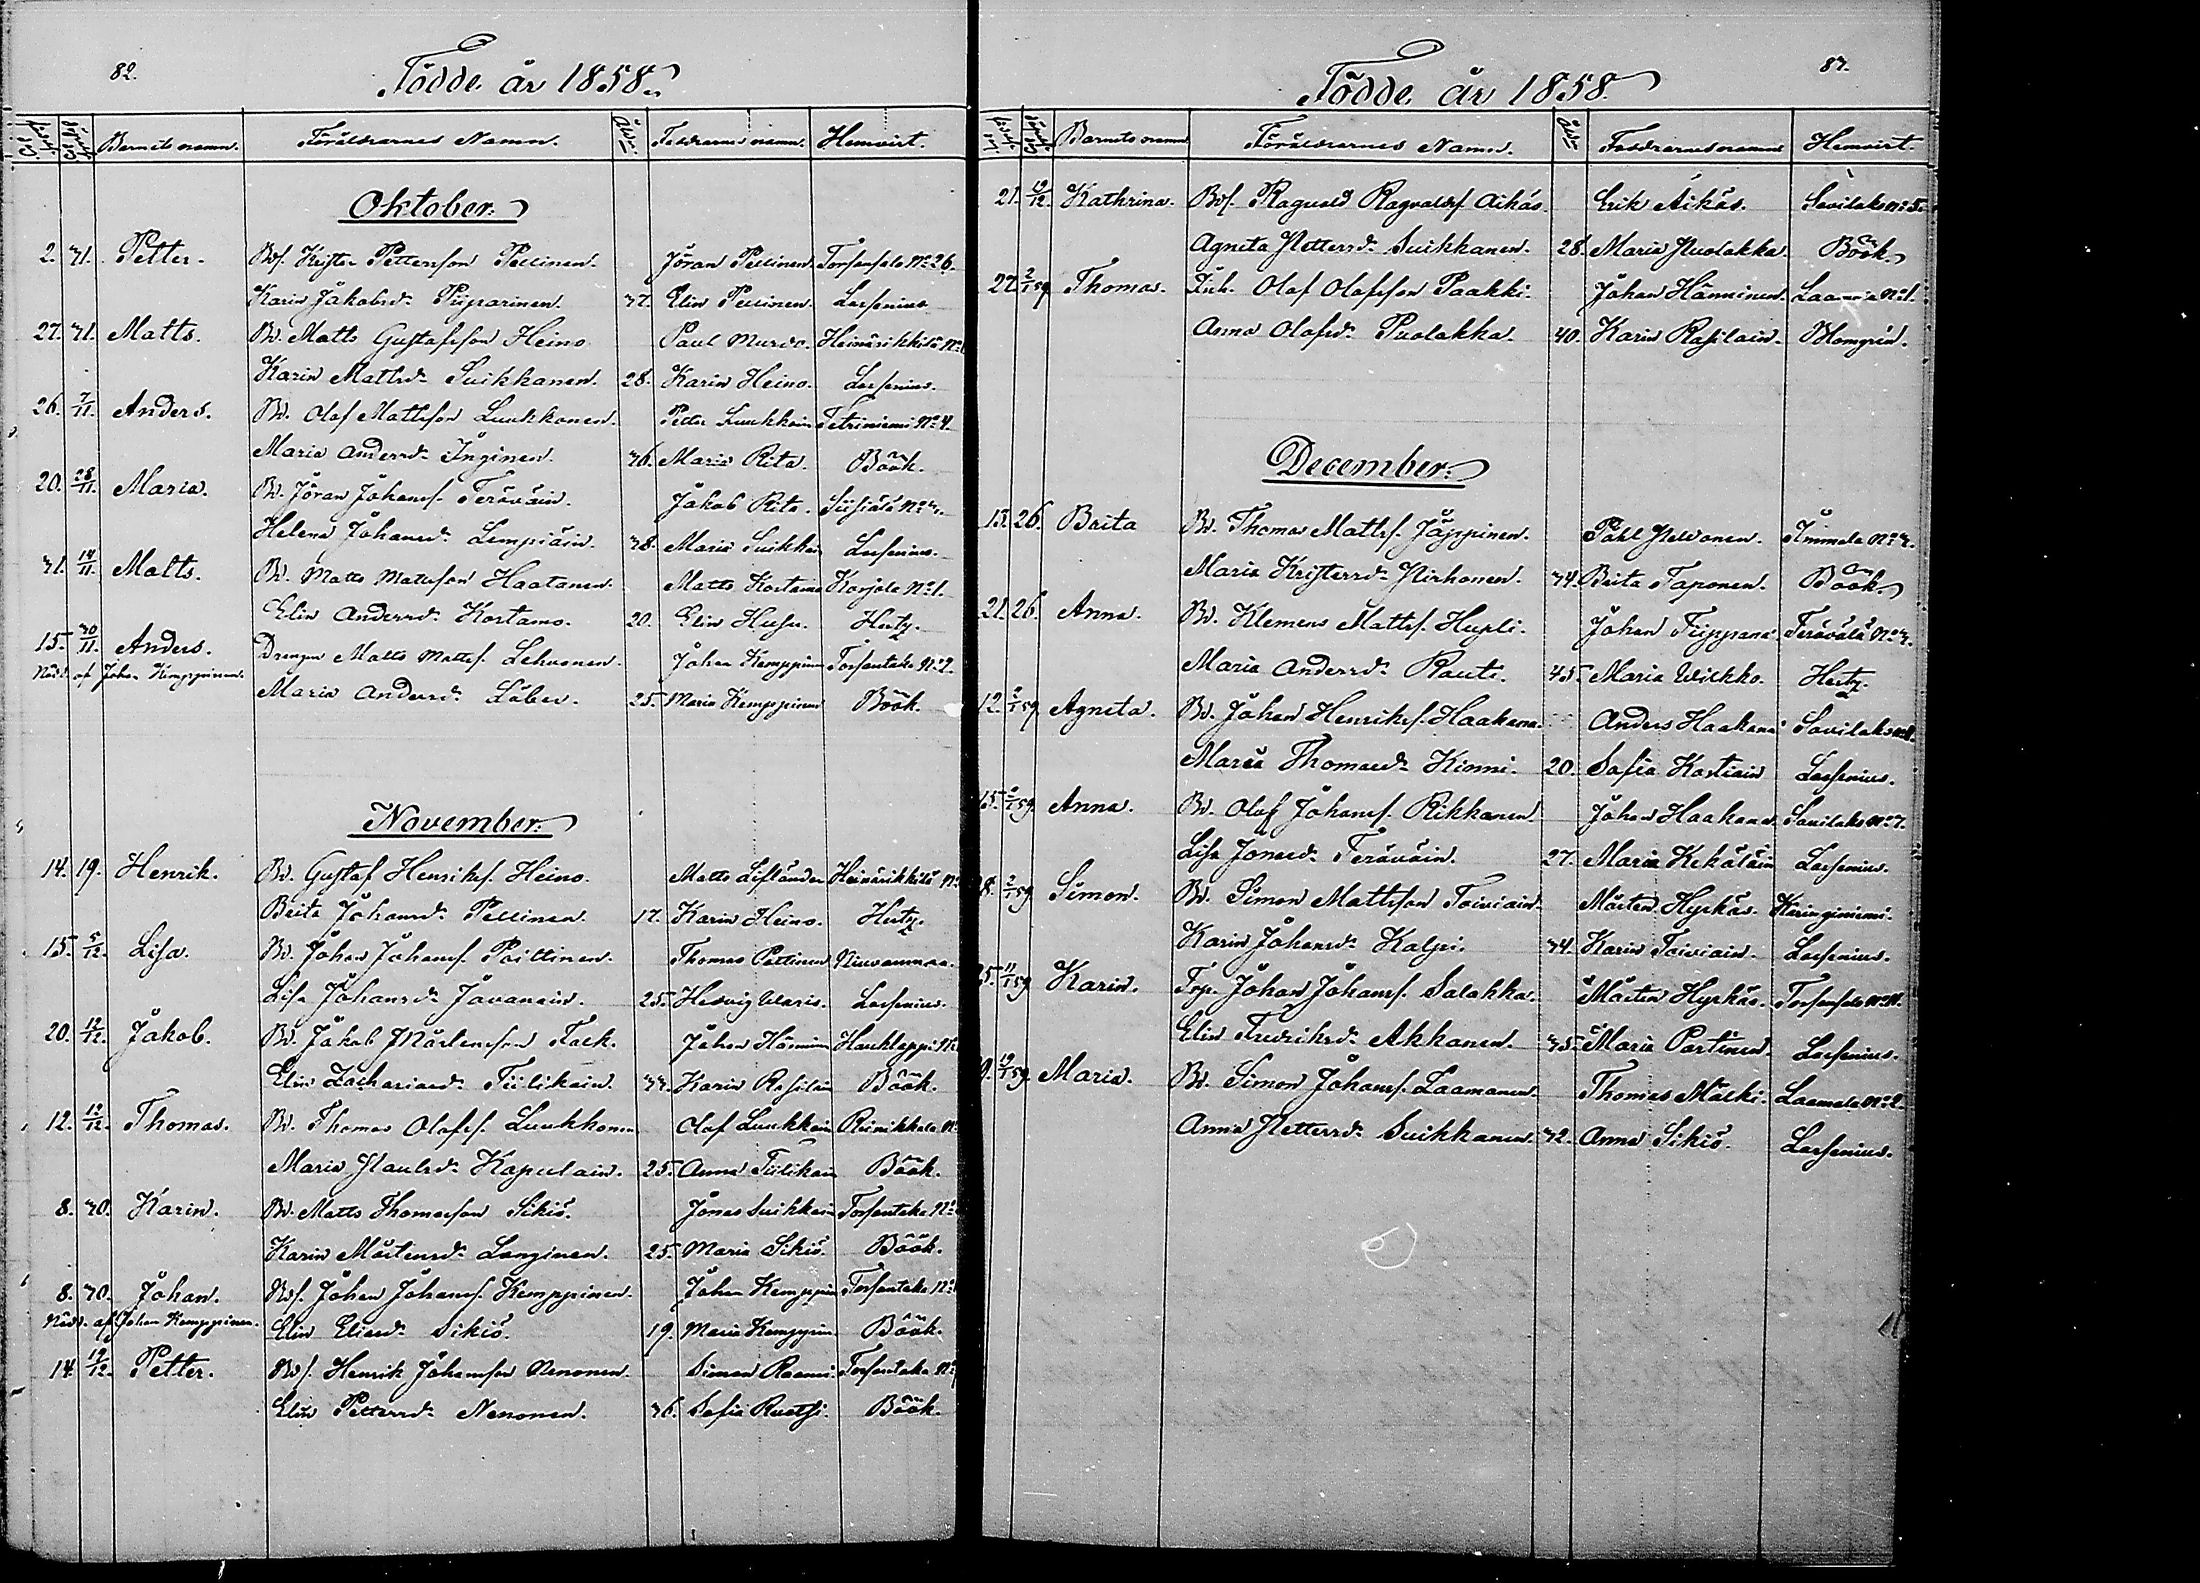 82.
Födde år 1858.
Barnets namn. Föräldrarnes Namn. Åld. Faddrarnes namn. Hemvist.
Oktober.
2. 31. Petter. Bdf. Krister Pettersson Pellinen. Jöran Pellinen Torsansalo No 26.
Karin Jakobsdr Piiparinen. 37. Elin Pellinen. Lorsenius
27. 31. Matts. Bd. Matts Gustafsson Heino Paul Muroo. Heinärikkilä No
Karin Mattsdr Suikkanen. 28. Karin Heino. Lorsenius.
26. 7/11. Anders. Bd. Olof Mattsson Luukkonen. Petter Luukkain Tetriniemi No 4.
Maria Andersdr Inginen. 36. Maria Rita. Böök.
20. 28/11. Maria. Bd. Jöran Johanss. Teräväin. Jakob Rita.
Helena Johansdr Lempiäin. 38. Maria Suikkan Lorsenius.
31. 14/11. Matts. Bd. Matts Matsson Haatanen. Matts Kortama Korjola No 1.
Elin Andersdr Kortama. 20. Elin Husu. Hertz.
15. 30/11. Anders. Drengen Matts Matts. Lehvonen. Johan Kemppinen Torsantaka No 2.
Nödd. af Johan Kemppinen.
Maria Andersdr Löber. 25. Maria Kemppinen Böök.
November.
14. 19. Henrik. Bd. Gustaf Henriks. Heino. Matts Lifländer Heinärikkilä No
Brita Johansdr Pellinen. 17. Karin Heino. Hertz.
15. 5/12. Lisa. Bd. Johan Johanss. Poittinen. Thomas Pöttinen
Lisa Johansdr Javanain. 25. Hedvig Waris. Lorsenius.
20. 12/12. Jakob. Bd. Jakob Mårtensson Tack. Johan Hännin Hauklappi No
Elin Zachariasdr Tiilikain. 33. Karin Rasilain Böök.
12. 12/12. Thomas. Bd. Thomas Olofs. Luukkonen Olof Luukkain Reinikkala No
Maria Paulsdr Kapulain. 25. Anna Tiilikain Böök.
8. 30. Karin. Bd. Matts Thomasson Sikiö. Jonas Suikkain Torsantaka No
Karin Mårtensdr Langinen. 25. Maria Sikiö. Böök.
8. 30. Johan. Bdf. Johan Johanss. Kemppinen. Johan Kemppin Torsantaka No
Nödd. af Johan Kemppinen.
Elin Eliasdr Sikiö. 19. Maria Kemppin Böök.
14. 19/12. Petter. Bdf. Henrik Johansson Nenonen. Simon Raami. Torsantaka No
Elin Pettersdr Nenonen. 36. Sofia Ruotsi. Böök.
83.
Födde år 1858.
Barnets namn Föräldrarnes Namn. Åld. Faddrarnes namn Hemvist.
21. 19/12. Kathrina. Bdf. Raguald Ragvalds. Aikäs. Erik Aikäs. Savilaks No 5.
Agneta Pettersdr Suikkanen. 28. Maria Puolakka. Böök.
27. 2/1 59 Thomas. Inh. Olof Olofsson Paakki. Johan Hänninen. No 1.
Anna Olofsdr Puolakka. 40. Karin Rasilain. Blomgrén.
December.
13. 26. Brita Bd. Thomas Matts. Jäppinen. Påhl Pelvonen. Immala No 3.
Maria Kristersdr Pirhonen. 34. Brita Taponen. Böök.
21. 26. Anna. Bd. Klemens Matts. Hupli. Johan Tiippana Terävälä No 3.
Maria Andersdr Rauti. 45. Maria Wilkko. Hertz.
12. 2/1 59 Agneta. Bd. Johan Henriks. Haakana. Anders Haakana Savilaks
Maria Thomasdr Kinni. 20. Sofia Kostiain Lorsenius.
15. 2/1 59 Anna. Bd. Olof Johanss. Rikkanen. Johan Haakana Savilaks No 7.
Lisa Jonasdr Teräväin. 27. Maria Kekäläin Lorsenius.
28. 2/1 59 Simon. Bd. Simon Mattsson Toiviain. Mårten Hyrkäs. Käringiniemi.
Karin Johansdr Kalpi. 34. Karin Toiviain. Lorsenius.
25. 11/1 59 Karin. Trp. Johan Johanss. Salakka. Mårten Hyrkäs. Torsansalo
Elin Fredriksdr Akkanen. 35. Maria Partinen. Lorsenius.
19/1 59. Maria. Bd. Simon Johanss. Laamanen. Thomas Mälki. Laamala No 2.
Anna Pettersdr Suikkanen. 32. Anna Sikiö. Lorsenius.